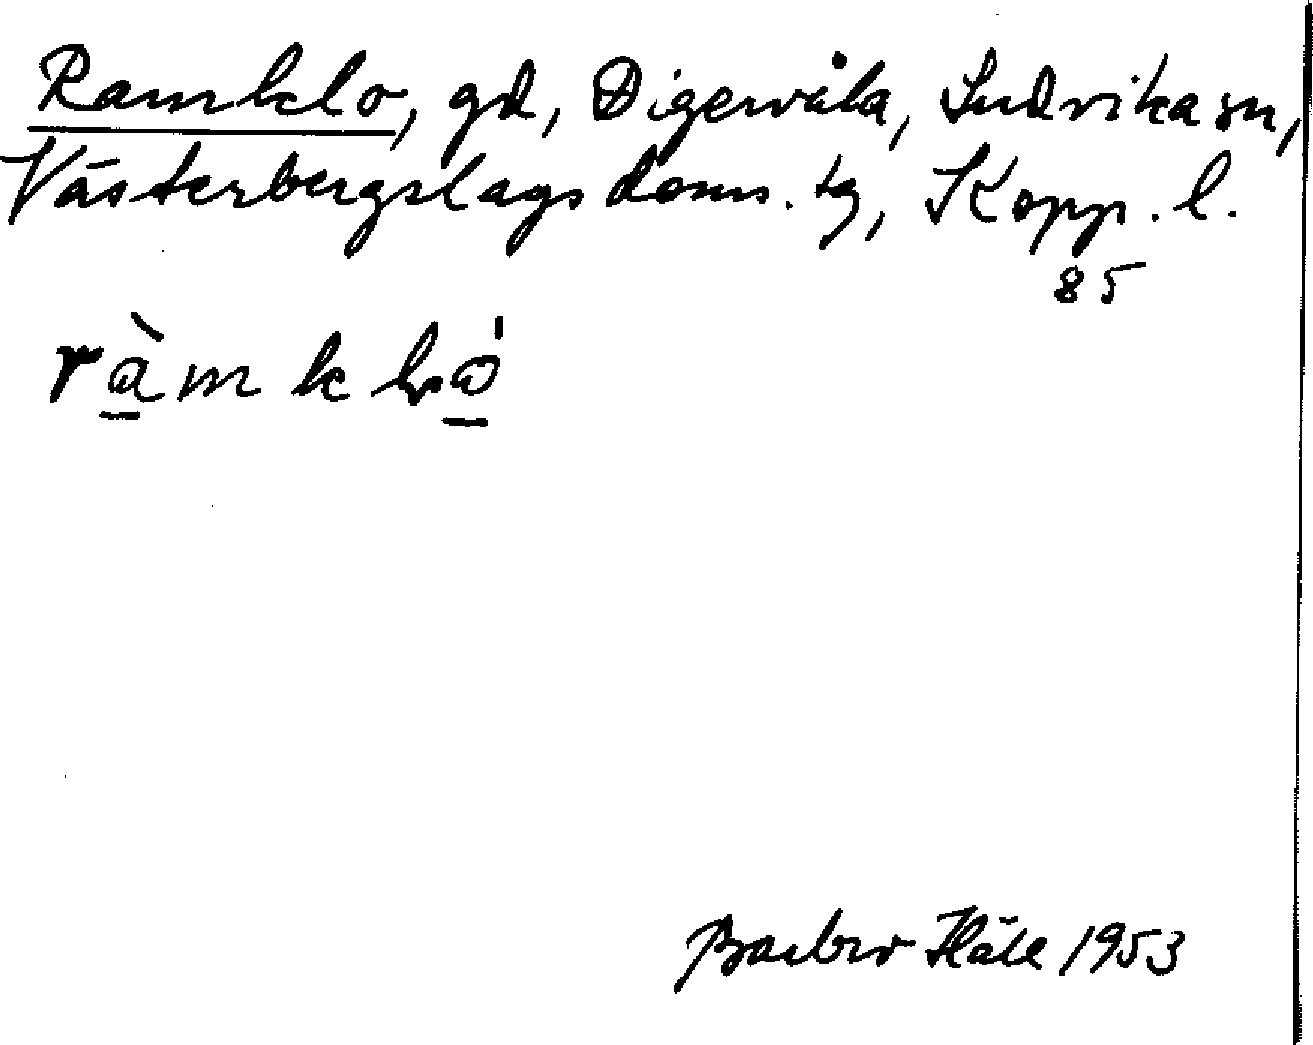 Ramklo, gd, Digervåla, Ludvika sn,
Västerbergslags doms. tg, Kopp. l.
85
Barbro Häll 1953